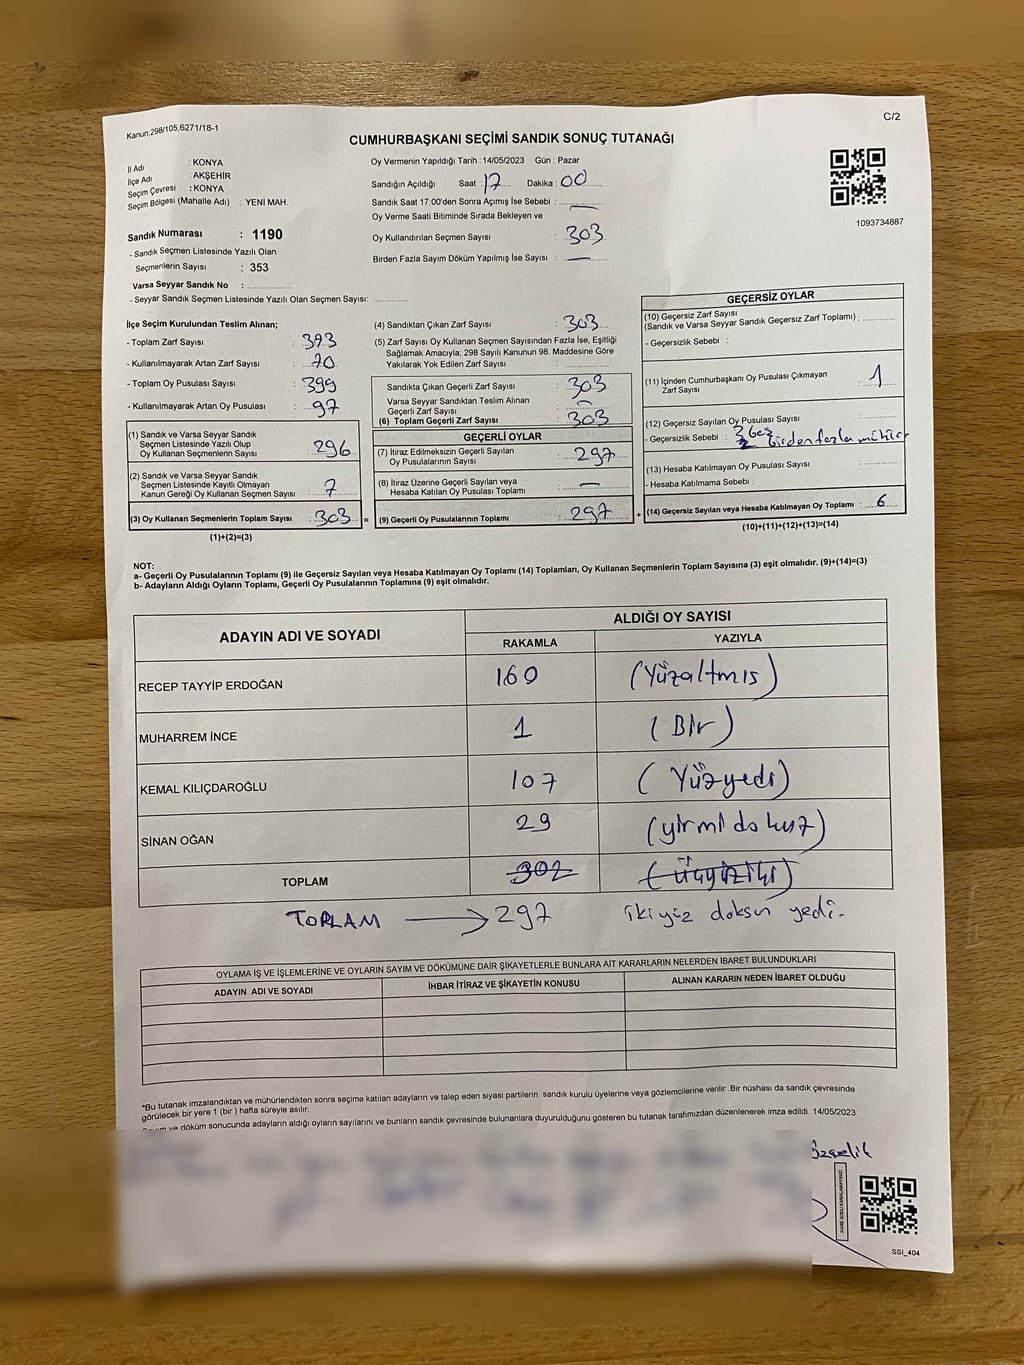 Kanun.298/105,6271/18-1
C/2
CUMHURBAŞKANI SEÇİMİ SANDIK SONUÇ TUTANAĞI
İl Adı : KONYA
İlçe Adı : AKŞEHİR
Seçim Çevresi : KONYA
Seçim Bölgesi (Mahalle Adı) : YENİ MAH.
Oy Vermenin Yapıldığı Tarih : 14/05/2023 Gün : Pazar
Sandığın Açıldığı Saat : 17 Dakika : 00
Sandık Saat 17:00'den Sonra Açımış İse Sebebi : —
Oy Verme Saati Bitiminde Sırada Bekleyen ve
Oy Kullandırılan Seçmen Sayısı : 303
Birden Fazla Sayım Döküm Yapılmış İse Sayısı : —
1093734887
Sandık Numarası : 1190
- Sandık Seçmen Listesinde Yazılı Olan
Seçmenlerin Sayısı : 353
Varsa Seyyar Sandık No :
- Seyyar Sandık Seçmen Listesinde Yazılı Olan Seçmen Sayısı:
İlçe Seçim Kurulundan Teslim Alınan;
- Toplam Zarf Sayısı : 373
- Kullanılmayarak Artan Zarf Sayısı : 70
- Toplam Oy Pusulası Sayısı : 399
- Kullanılmayarak Artan Oy Pusulası : 97
(1) Sandık ve Varsa Seyyar Sandık
Seçmen Listesinde Yazılı Olup
Oy Kullanan Seçmenlerin Sayısı : 296
(2) Sandık ve Varsa Seyyar Sandık
Seçmen Listesinde Kayıtlı Olmayan
Kanun Gereği Oy Kullanan Seçmen Sayısı : 7
(3) Oy Kullanan Seçmenlerin Toplam Sayısı : 303 =
(1)+(2)=(3)
(4) Sandıktan Çıkan Zarf Sayısı : 303
(5) Zarf Sayısı Oy Kullanan Seçmen Sayısından Fazla İse, Eşitliği
Sağlamak Amacıyla; 298 Sayılı Kanunun 98. Maddesine Göre
Yakılarak Yok Edilen Zarf Sayısı :
Sandıkta Çıkan Geçerli Zarf Sayısı : 303
Varsa Seyyar Sandıktan Teslim Alınan
Geçerli Zarf Sayısı : —
(6) Toplam Geçerli Zarf Sayısı : 303
GEÇERLİ OYLAR
(7) İtiraz Edilmeksizin Geçerli Sayılan
Oy Pusulalarının Sayısı : 297
(8) İtiraz Üzerine Geçerli Sayılan veya
Hesaba Katılan Oy Pusulası Toplamı : —
(9) Geçerli Oy Pusulalarının Toplamı : 297 +
GEÇERSİZ OYLAR
(10) Geçersiz Zarf Sayısı
(Sandık ve Varsa Seyyar Sandık Geçersiz Zarf Toplamı) :
- Geçersizlik Sebebi :
(11) İçinden Cumhurbaşkanı Oy Pusulası Çıkmayan
Zarf Sayısı : 1
(12) Geçersiz Sayılan Oy Pusulası Sayısı :
- Geçersizlik Sebebi : birden fazla mühür
(13) Hesaba Katılmayan Oy Pusulası Sayısı :
- Hesaba Katılmama Sebebi :
(14) Geçersiz Sayılan veya Hesaba Katılmayan Oy Toplamı : 6
(10)+(11)+(12)+(13)=(14)
NOT:
a- Geçerli Oy Pusulalarının Toplamı (9) ile Geçersiz Sayılan veya Hesaba Katılmayan Oy Toplamı (14) Toplamları, Oy Kullanan Seçmenlerin Toplam Sayısına (3) eşit olmalıdır. (9)+(14)=(3)
b- Adayların Aldığı Oyların Toplamı, Geçerli Oy Pusulalarının Toplamına (9) eşit olmalıdır.
ADAYIN ADI VE SOYADI
ALDIĞI OY SAYISI
RAKAMLA YAZIYLA
RECEP TAYYİP ERDOĞAN 160 (Yüzaltmış)
MUHARREM İNCE 1 (Bir)
KEMAL KILIÇDAROĞLU 107 (Yüzyedi)
SİNAN OĞAN 29 (yirmi dokuz)
TOPLAM 302 (üçyüziki)
TOPLAM → 297 ikiyüz doksan yedi.
OYLAMA İŞ VE İŞLEMLERİNE VE OYLARIN SAYIM VE DÖKÜMÜNE DAİR ŞİKAYETLERLE BUNLARA AİT KARARLARIN NELERDEN İBARET BULUNDUKLARI
ADAYIN ADI VE SOYADI İHBAR İTİRAZ VE ŞİKAYETİN KONUSU ALINAN KARARIN NEDEN İBARET OLDUĞU
*Bu tutanak imzalandıktan ve mühürlendikten sonra seçime katılan adayların ve talep eden siyasi partilerin sandık kurulu üyelerine veya gözlemcilerine verilir .Bir nüshası da sandık çevresinde
görülecek bir yere 1 (bir ) hafta süreyle asılır.
ve döküm sonucunda adayların aldığı oyların sayılarını ve bunların sandık çevresinde bulunanlara duyurulduğunu gösteren bu tutanak tarafımızdan düzenlenerek imza edildi. 14/05/2023
özçelik
SSI_404